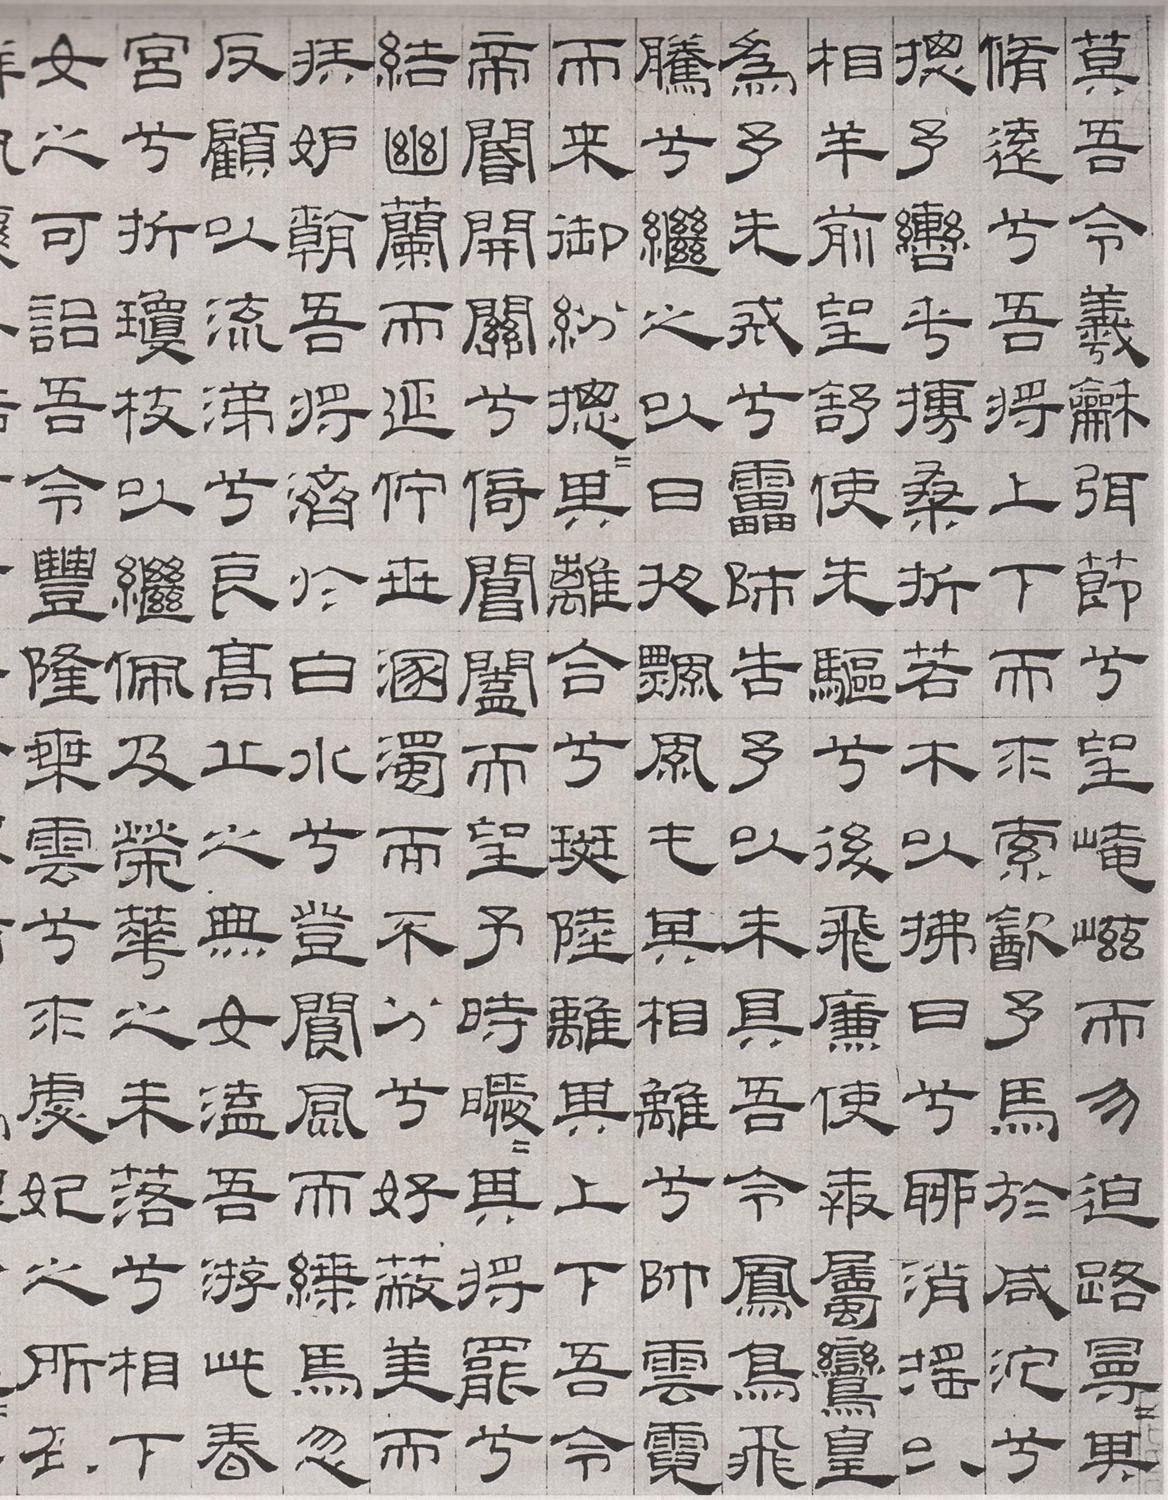 莫吾令羲龢弭節兮望崦嵫而勿迫路曼〻其
脩遠兮吾將上下而求索㱃予馬於咸沱兮
摠予轡乎摶桑折若木以拂日兮聊消摇以
相羊前望舒使先驅兮後飛廉使奔屬鸞皇
為予先戒兮靁師告予以未具吾令鳳鳥飛
騰兮繼之以日夜飄風屯其相離兮帥雲霓
而来御紛摠〻其離合兮斑陸離其上下吾令
帝閽開關兮倚閶闔而望予時曖〻其將罷兮
結幽蘭而延佇世溷濁而不分兮好蔽美而
嫉妒朝吾將濟於白水兮登閬風而緤馬忽
反顧以流涕兮哀高丘之無女溘吾游此春
宮兮折瓊枝以繼佩及榮華之未落兮相下
女之可詒吾令豐隆乘雲兮求虙妃之所在